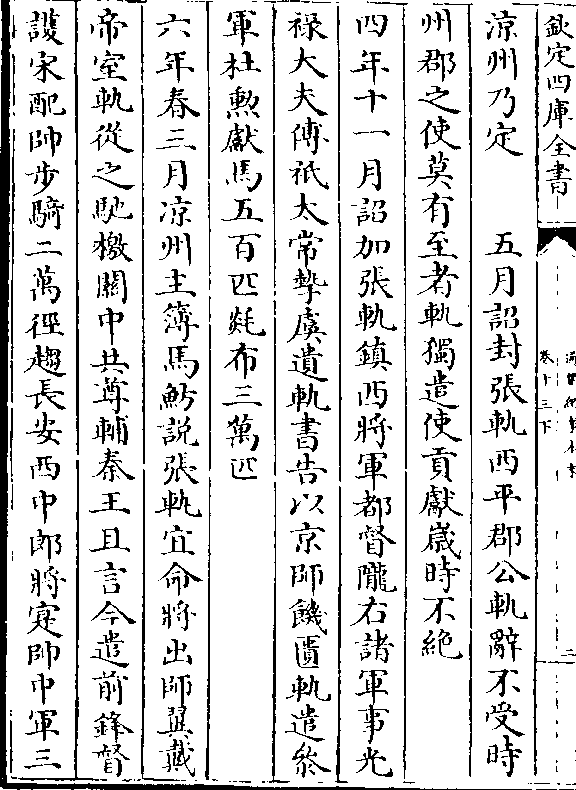 欽定四庫全書
卷十三下
二
涼州乃定　五月詔封張軌西平郡公軌辭不受時
州郡之使莫有至者軌獨遣使貢獻嵗時不絶
四年十一月詔加張軌鎮西將軍都督隴右諸軍事光
祿大夫傅祇太常摯虞遺軌書告以京師饑匱軌遣㕘
軍杜勲獻馬五百匹毼布三萬匹
六年春三月凉州主簿馬魴説張軌宜命將出師翼戴
帝室軌從之馳檄關中共尊輔秦王且言今遣前鋒督
護宋配帥步騎二萬徑趨長安西中郎將寔帥中軍三